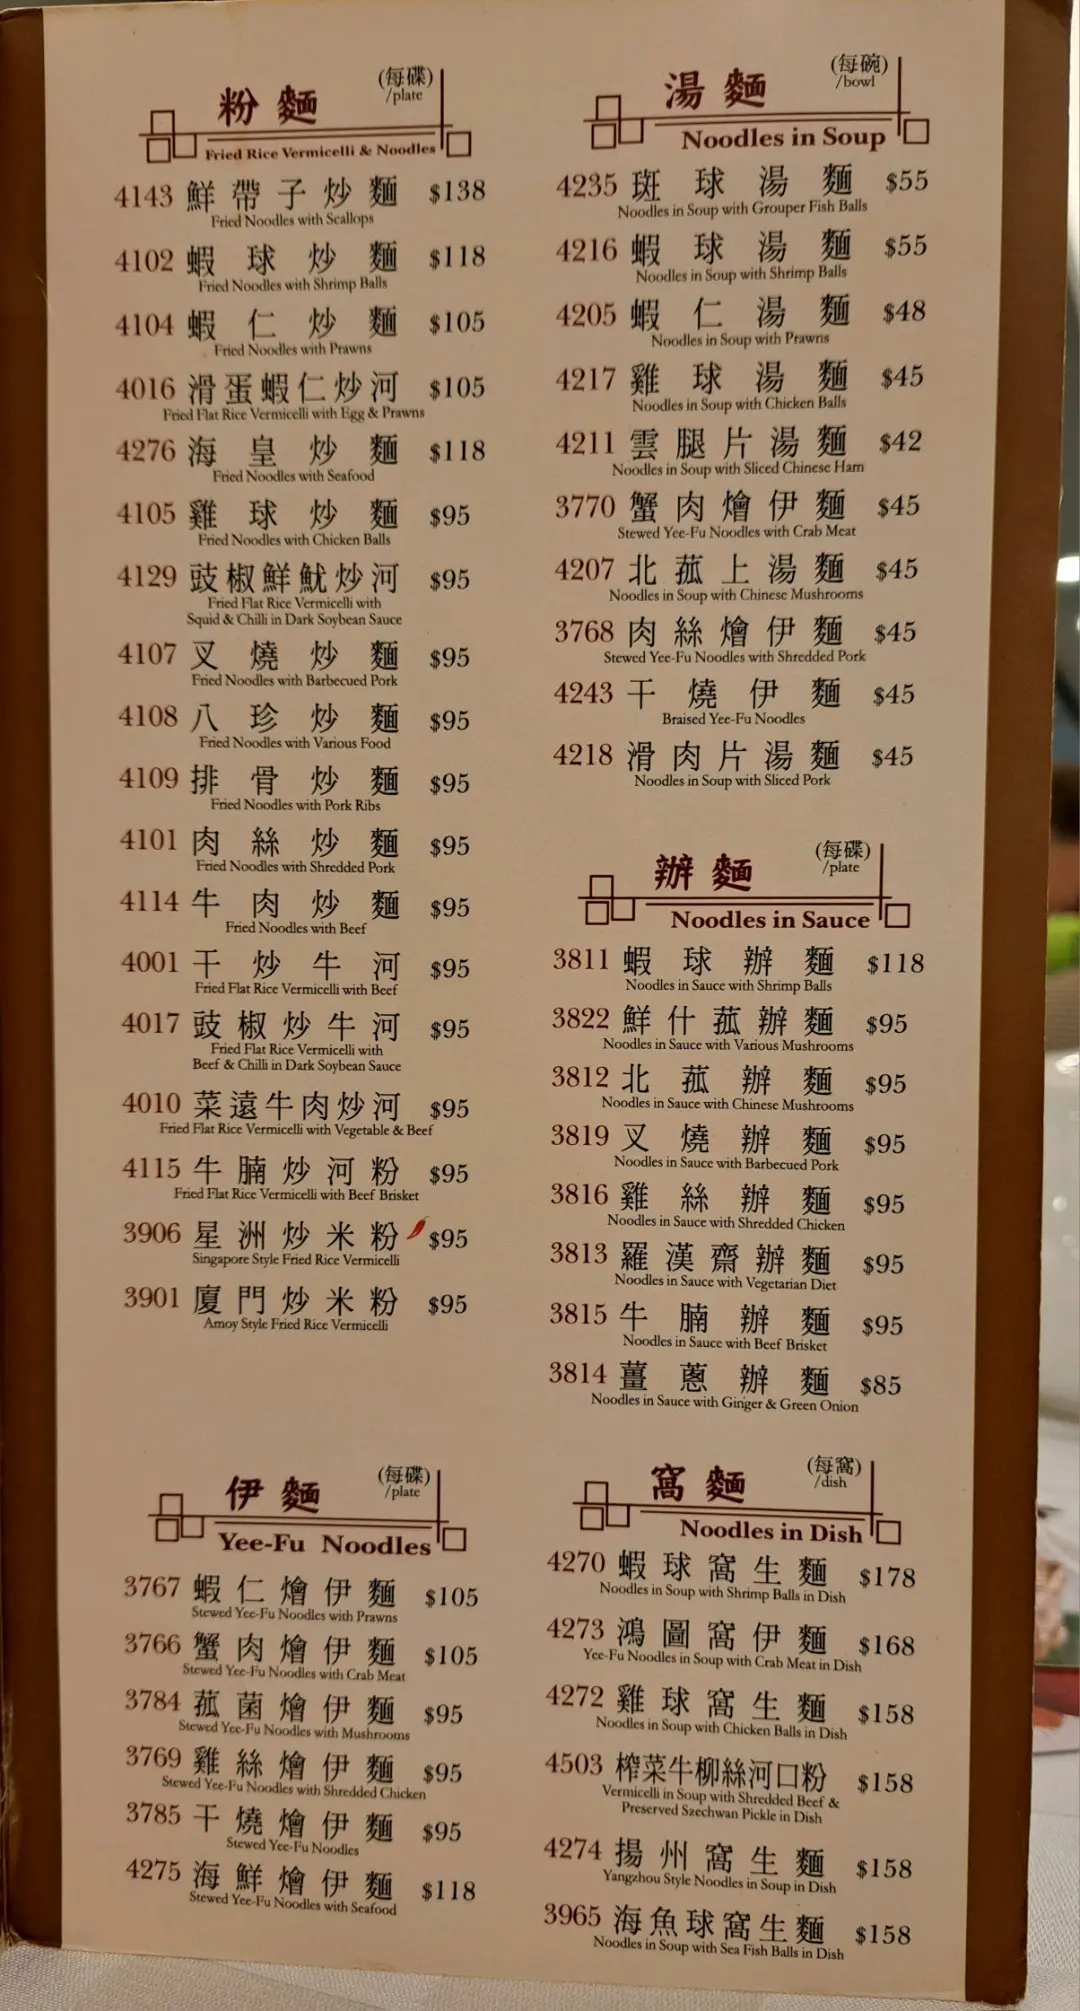 粉麵
(每碟)
/plate
Fried Rice Vermicelli & Noodles
4143 鮮帶子炒麵 $138
Fried Noodles with Scallops
4102 蝦球炒麵 $118
Fried Noodles with Shrimp Balls
4104 蝦仁炒麵 $105
Fried Noodles with Prawns
4016 滑蛋蝦仁炒河 $105
Fried Flat Rice Vermicelli with Egg & Prawns
4276 海皇炒麵 $118
Fried Noodles with Seafood
4105 雞球炒麵 $95
Fried Noodles with Chicken Balls
4129 豉椒鮮魷炒河 $95
Fried Flat Rice Vermicelli with
Squid & Chilli in Dark Soybean Sauce
4107 叉燒炒麵 $95
Fried Noodles with Barbecued Pork
4108 八珍炒麵 $95
Fried Noodles with Various Food
4109 排骨炒麵 $95
Fried Noodles with Pork Ribs
4101 肉絲炒麵 $95
Fried Noodles with Shredded Pork
4114 牛肉炒麵 $95
Fried Noodles with Beef
4001 干炒牛河 $95
Fried Flat Rice Vermicelli with Beef
4017 豉椒炒牛河 $95
Fried Flat Rice Vermicelli with
Beef & Chilli in Dark Soybean Sauce
4010 菜遠牛肉炒河 $95
Fried Flat Rice Vermicelli with Vegetable & Beef
4115 牛腩炒河粉 $95
Fried Flat Rice Vermicelli with Beef Brisket
3906 星洲炒米粉 $95
Singapore Style Fried Rice Vermicelli
3901 廈門炒米粉 $95
Amoy Style Fried Rice Vermicelli
伊麵
(每碟)
/plate
Yee-Fu Noodles
3767 蝦仁燴伊麵 $105
Stewed Yee-Fu Noodles with Prawns
3766 蟹肉燴伊麵 $105
Stewed Yee-Fu Noodles with Crab Meat
3784 菰菌燴伊麵 $95
Stewed Yee-Fu Noodles with Mushrooms
3769 雞絲燴伊麵 $95
Stewed Yee-Fu Noodles with Shredded Chicken
3785 干燒燴伊麵 $95
Stewed Yee-Fu Noodles
4275 海鮮燴伊麵 $118
Stewed Yee-Fu Noodles with Seafood
湯麵
(每碗)
/bowl
Noodles in Soup
4235 斑球湯麵 $55
Noodles in Soup with Grouper Fish Balls
4216 蝦球湯麵 $55
Noodles in Soup with Shrimp Balls
4205 蝦仁湯麵 $48
Noodles in Soup with Prawns
4217 雞球湯麵 $45
Noodles in Soup with Chicken Balls
4211 雲腿片湯麵 $42
Noodles in Soup with Sliced Chinese Ham
3770 蟹肉燴伊麵 $45
Stewed Yee-Fu Noodles with Crab Meat
4207 北菰上湯麵 $45
Noodles in Soup with Chinese Mushrooms
3768 肉絲燴伊麵 $45
Stewed Yee-Fu Noodles with Shredded Pork
4243 干燒伊麵 $45
Braised Yee-Fu Noodles
4218 滑肉片湯麵 $45
Noodles in Soup with Sliced Pork
辦麵
(每碟)
/plate
Noodles in Sauce
3811 蝦球辦麵 $118
Noodles in Sauce with Shrimp Balls
3822 鮮什菰辦麵 $95
Noodles in Sauce with Various Mushrooms
3812 北菰辦麵 $95
Noodles in Sauce with Chinese Mushrooms
3819 叉燒辦麵 $95
Noodles in Sauce with Barbecued Pork
3816 雞絲辦麵 $95
Noodles in Sauce with Shredded Chicken
3813 羅漢齋辦麵 $95
Noodles in Sauce with Vegetarian Diet
3815 牛腩辦麵 $95
Noodles in Sauce with Beef Brisket
3814 薑蔥辦麵 $85
Noodles in Sauce with Ginger & Green Onion
窩麵
(每窩)
/dish
Noodles in Dish
4270 蝦球窩生麵 $178
Noodles in Soup with Shrimp Balls in Dish
4273 鴻圖窩伊麵 $168
Yee-Fu Noodles in Soup with Crab Meat in Dish
4272 雞球窩生麵 $158
Noodles in Soup with Chicken Balls in Dish
4503 榨菜牛柳絲河口粉 $158
Vermicelli in Soup with Shredded Beef &
Preserved Szechwan Pickle in Dish
4274 揚州窩生麵 $158
Yangzhou Style Noodles in Soup in Dish
3965 海魚球窩生麵 $158
Noodles in Soup with Sea Fish Balls in Dish